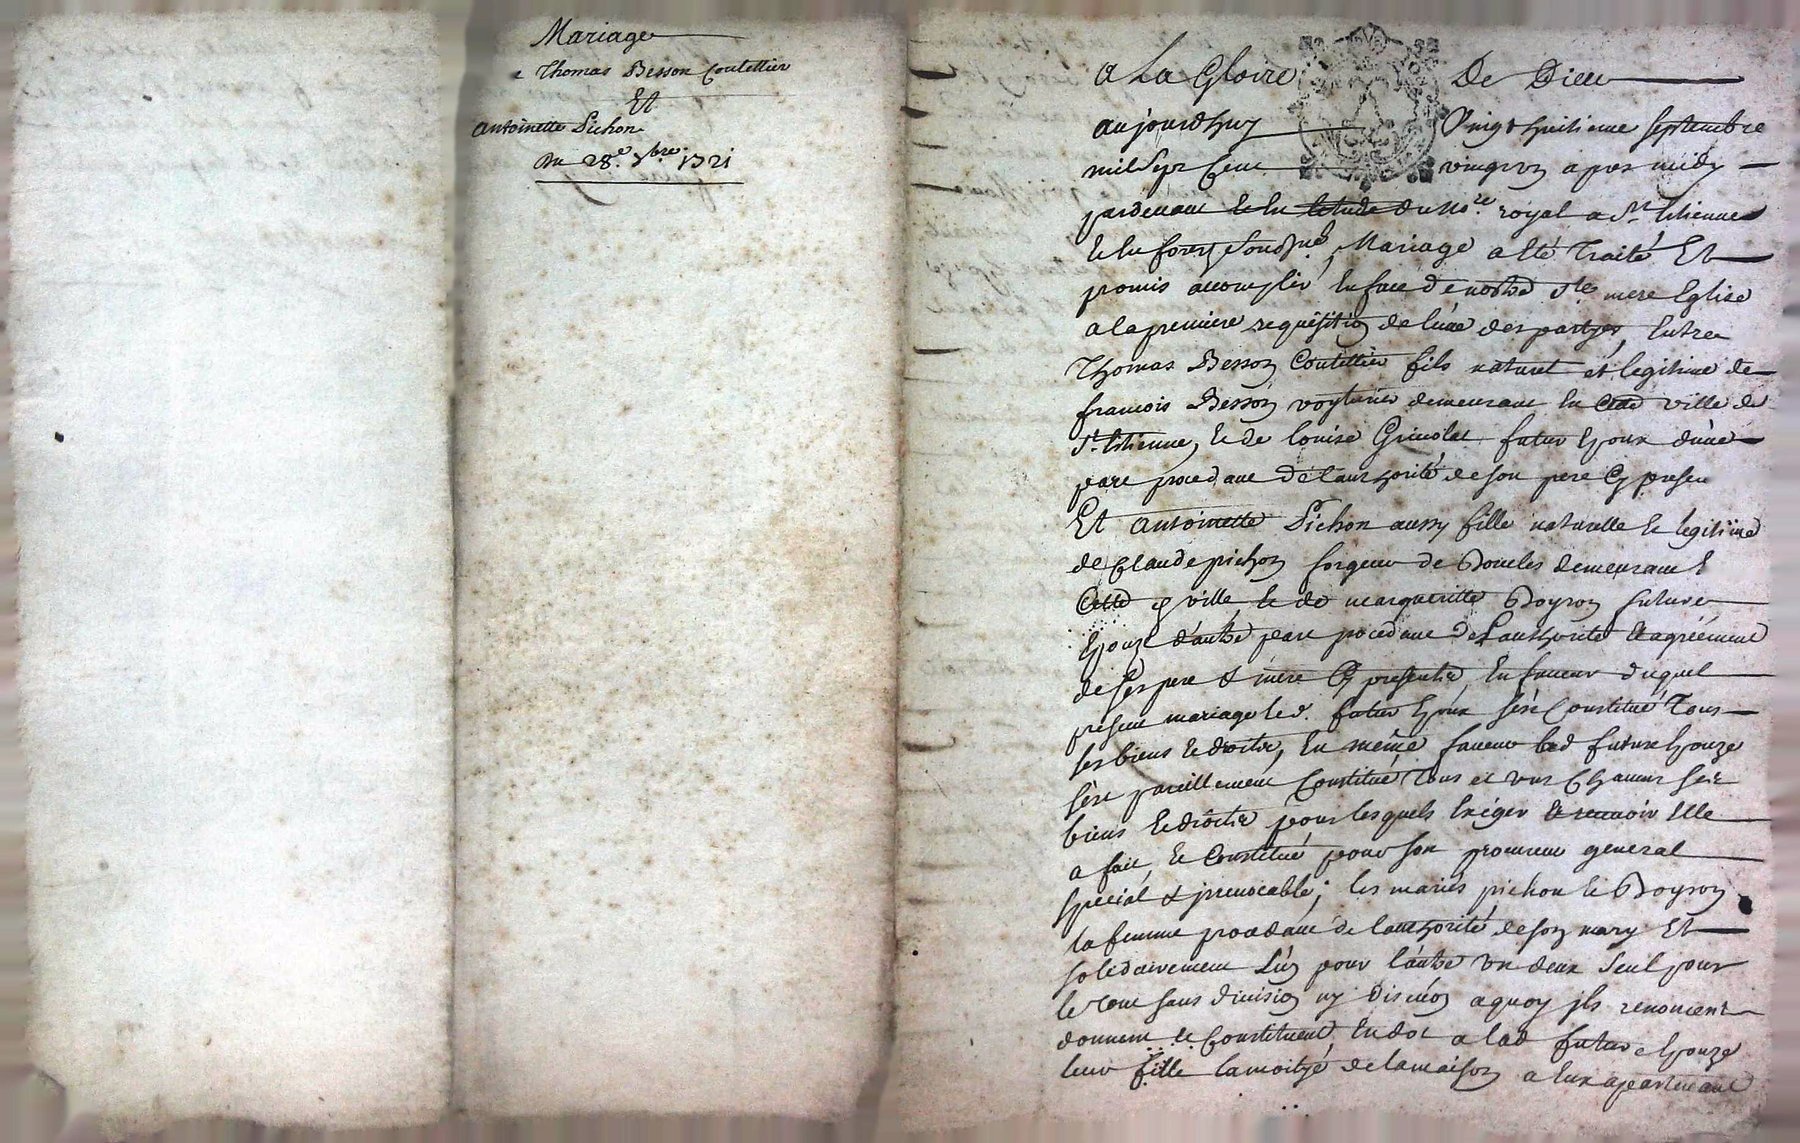 Mariage
e Thomas Besson Coutellier
Et
Antoinette Pichon
Du 28e. 7bre. 1721
a La Gloire De Dieu
aujourdhuy Vingt huitieme septembre
mil Sept Cent vingt un apres midy
pardevant le no.re royal a St. Etienne
en forest soussigné, Mariage a eté Traité Et
promis accomplir En face de nostre Ste mere Eglise
a la premiere requisition de lune des partyes, Entre
Thomas Besson Coutellier fils naturel et legitime de
francois Besson voyturier demeurant en Cette ville de
St. Etienne, et de Louise Grivolat futur Epoux d'une
part procedant de lauthorité de son pere Cy present
Et Antoinette Pichon aussy fille naturelle et legitime
de Claude pichon forgeur de Boucles demeurant E
Cette ville et de margueritte Boyron future
Epouze d'autre part procedant de Lauthorité et agréement
de ses pere & mere Cy presents, En faveur duquel
present mariage led. futur Epoux sest Constitué Tous
ses biens et droits, En même faveur lad future Epouze
sest pareillement Constitué Tous et uns Chacuns ses
biens et droits pour lesquels Exiger et recevoir Elle
a fait et Constitué pour son procureur general
special & irrevocable; les mariés pichon et Boyron
la femme procedant de lauthorité de son mary Et
solidairement L'un pour l'autre un deux Seul pour
le tout sans division ny discution aquoy ils renoncent
donnent et Constituent En dot a lad future Epouze
leur fille la moityé de la maison a Eux apartenant